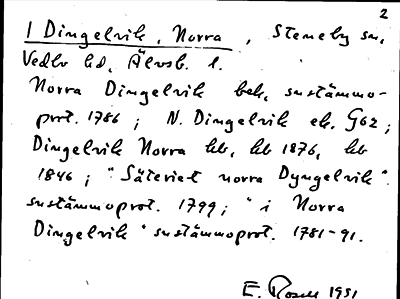 2
I Dingelvik, Norra, Steneby sn,
Vedbo hd, Älvsb. l.
Norra Dingelvik bek, sustämmo-
prot. 1786; N. Dingelvik ek. G62;
Dingelvik Norra kb, kb 1876, kb
1846; "Säteriet norra Dyngelvik"
sustämmoprot. 1799; "i Norra
Dingelvik" sustämmoprot. 1781-91.
E. 1951